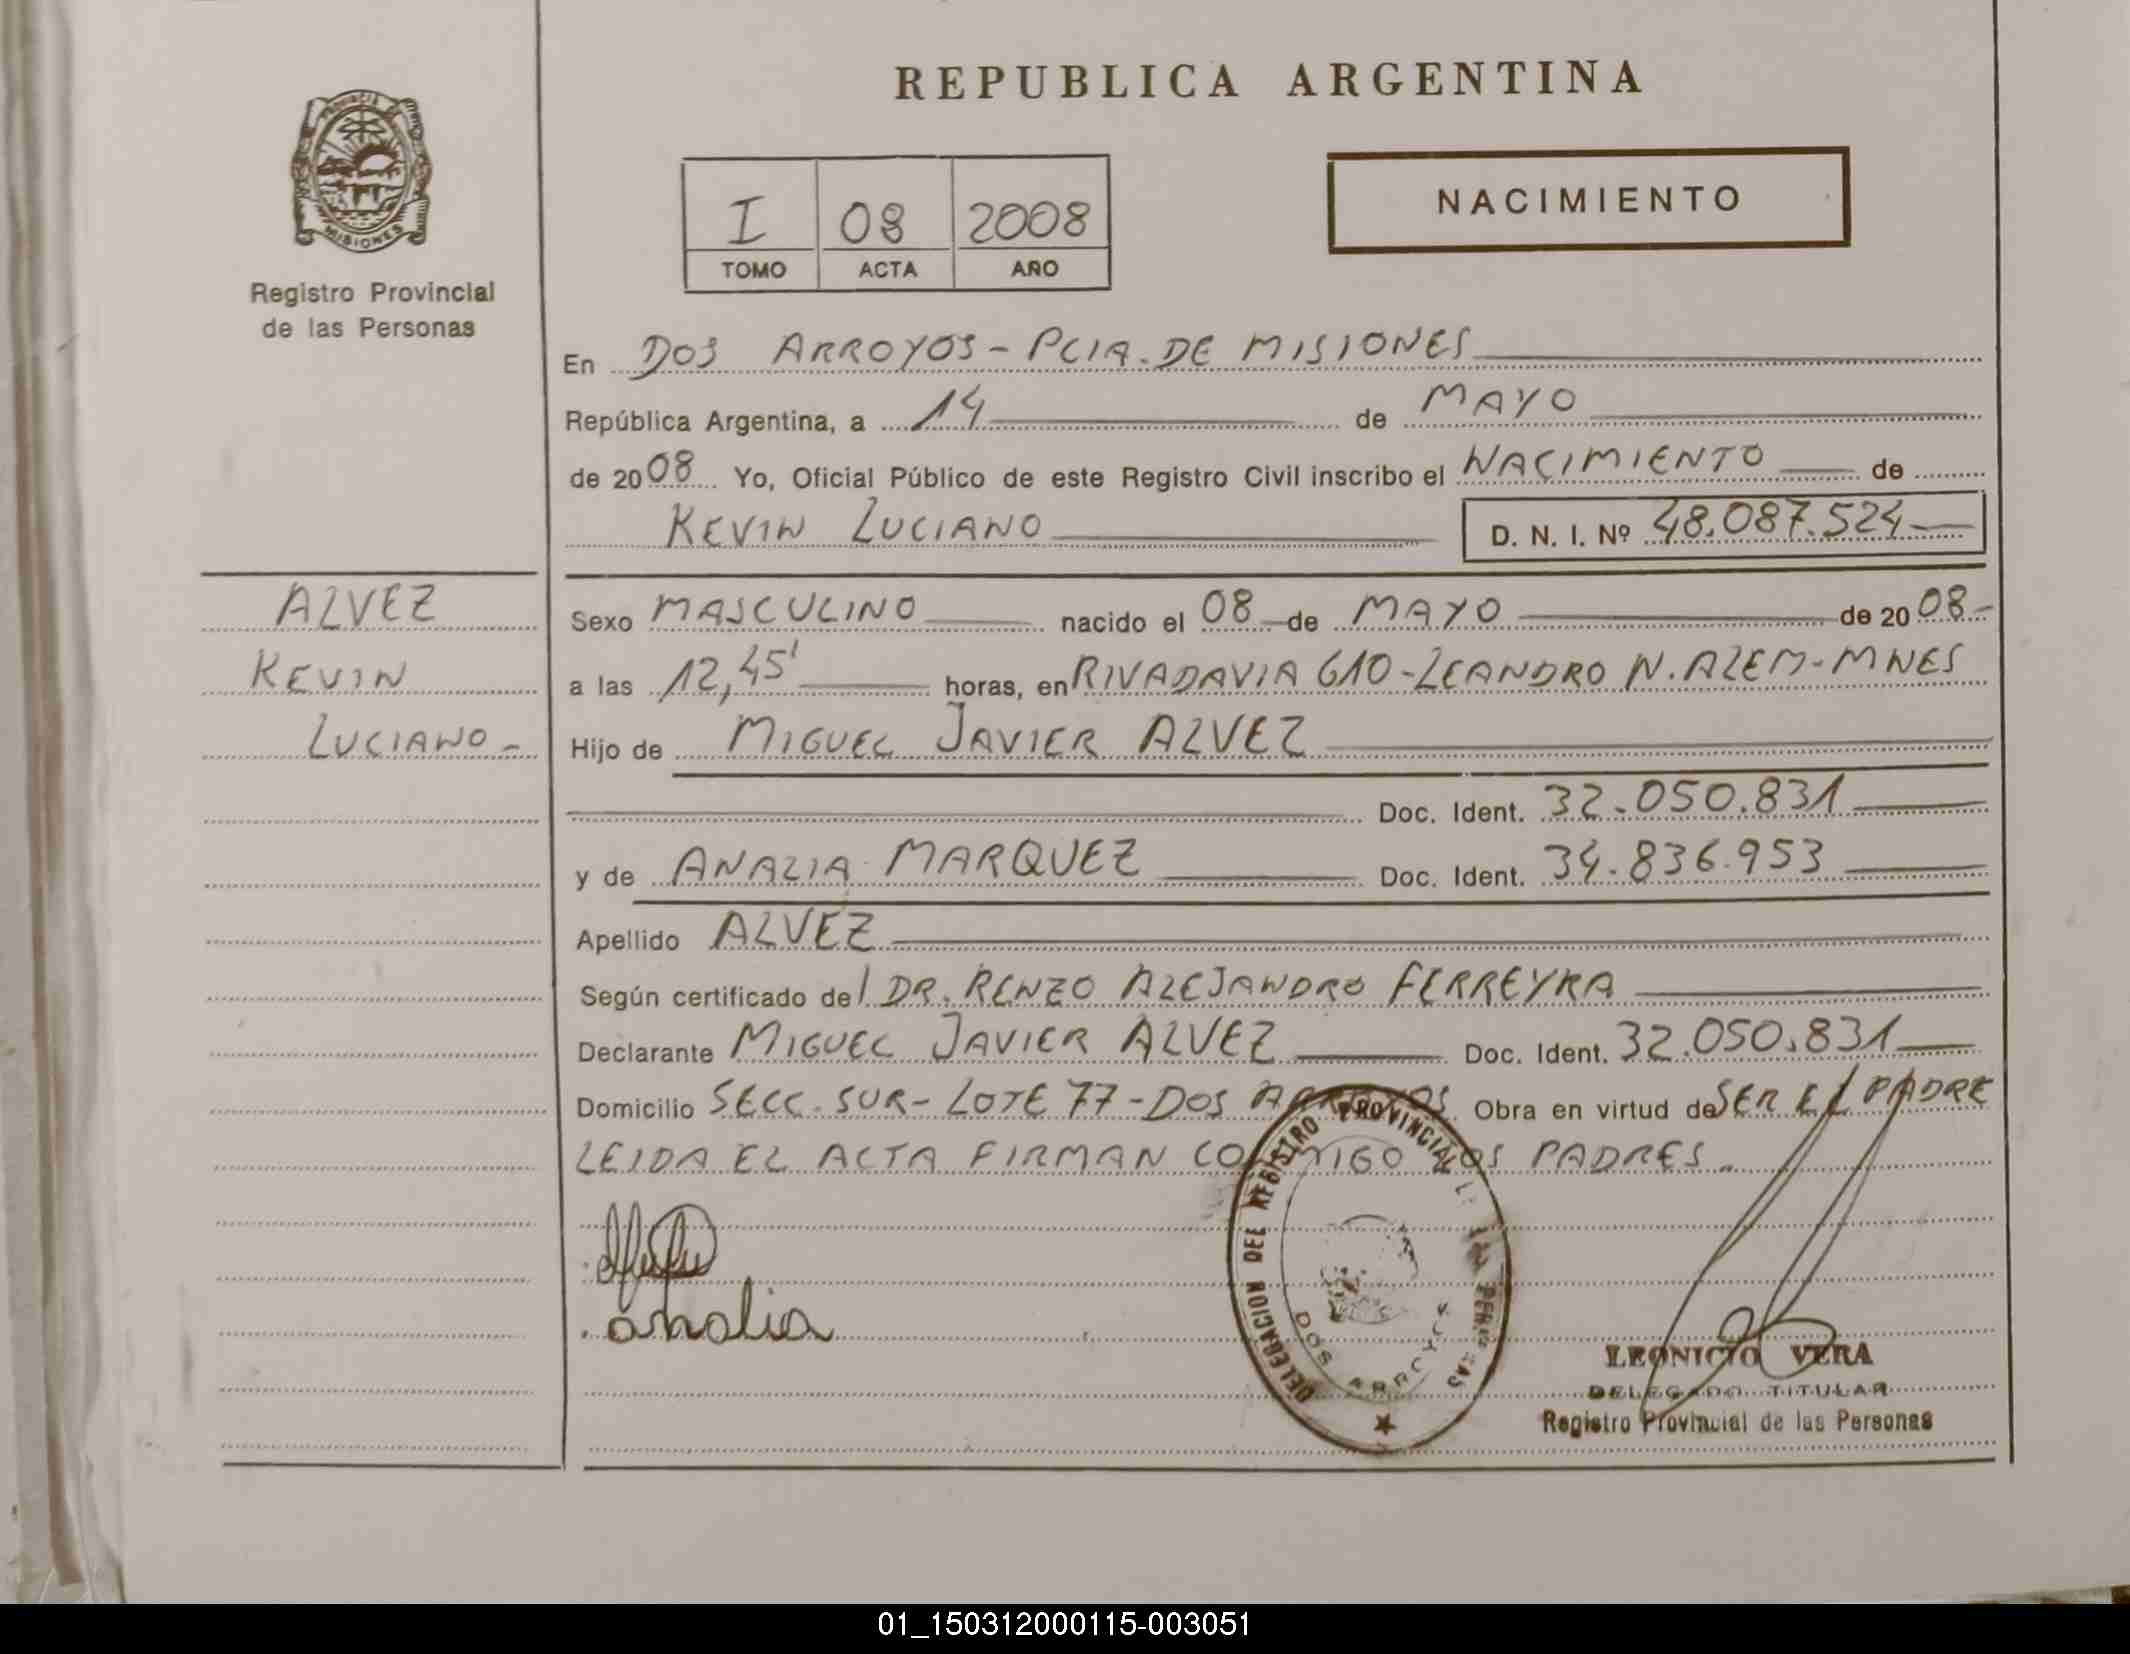 REPUBLICA ARGENTINA
PROVINCIA DE
MISIONES
Registro Provincial
de las Personas
I 08 2008
TOMO ACTA AÑO
NACIMIENTO
En DOS ARROYOS - PCIA. DE MISIONES
República Argentina, a 14 de MAYO
de 2008 Yo, Oficial Público de este Registro Civil inscribo el NACIMIENTO de
KEVIN LUCIANO D. N. I. Nº 48.087.524
ALVEZ
KEVIN
LUCIANO -
Sexo MASCULINO nacido el 08 de MAYO de 2008 -
a las 12,45' horas, en RIVADAVIA 610 - LEANDRO N. ALEM - MNES
Hijo de MIGUEL JAVIER ALVEZ
Doc. Ident. 32.050.831
y de ANALIA MARQUEZ Doc. Ident. 34.836.953
Apellido ALVEZ
Según certificado del DR. RENZO ALEJANDRO FERREYRA
Declarante MIGUEL JAVIER ALVEZ Doc. Ident. 32.050.831
Domicilio SECC. SUR - LOTE 77 - DOS ARROYOS Obra en virtud de SER EL PADRE
LEIDA EL ACTA FIRMAN CONMIGO LOS PADRES.
analia
DELEGACION DEL REGISTRO PROVINCIAL DE LAS PERSONAS
DOS ARROYOS
LEONICIO VERA
DELEGADO TITULAR
Registro Provincial de las Personas
01_150312000115-003051